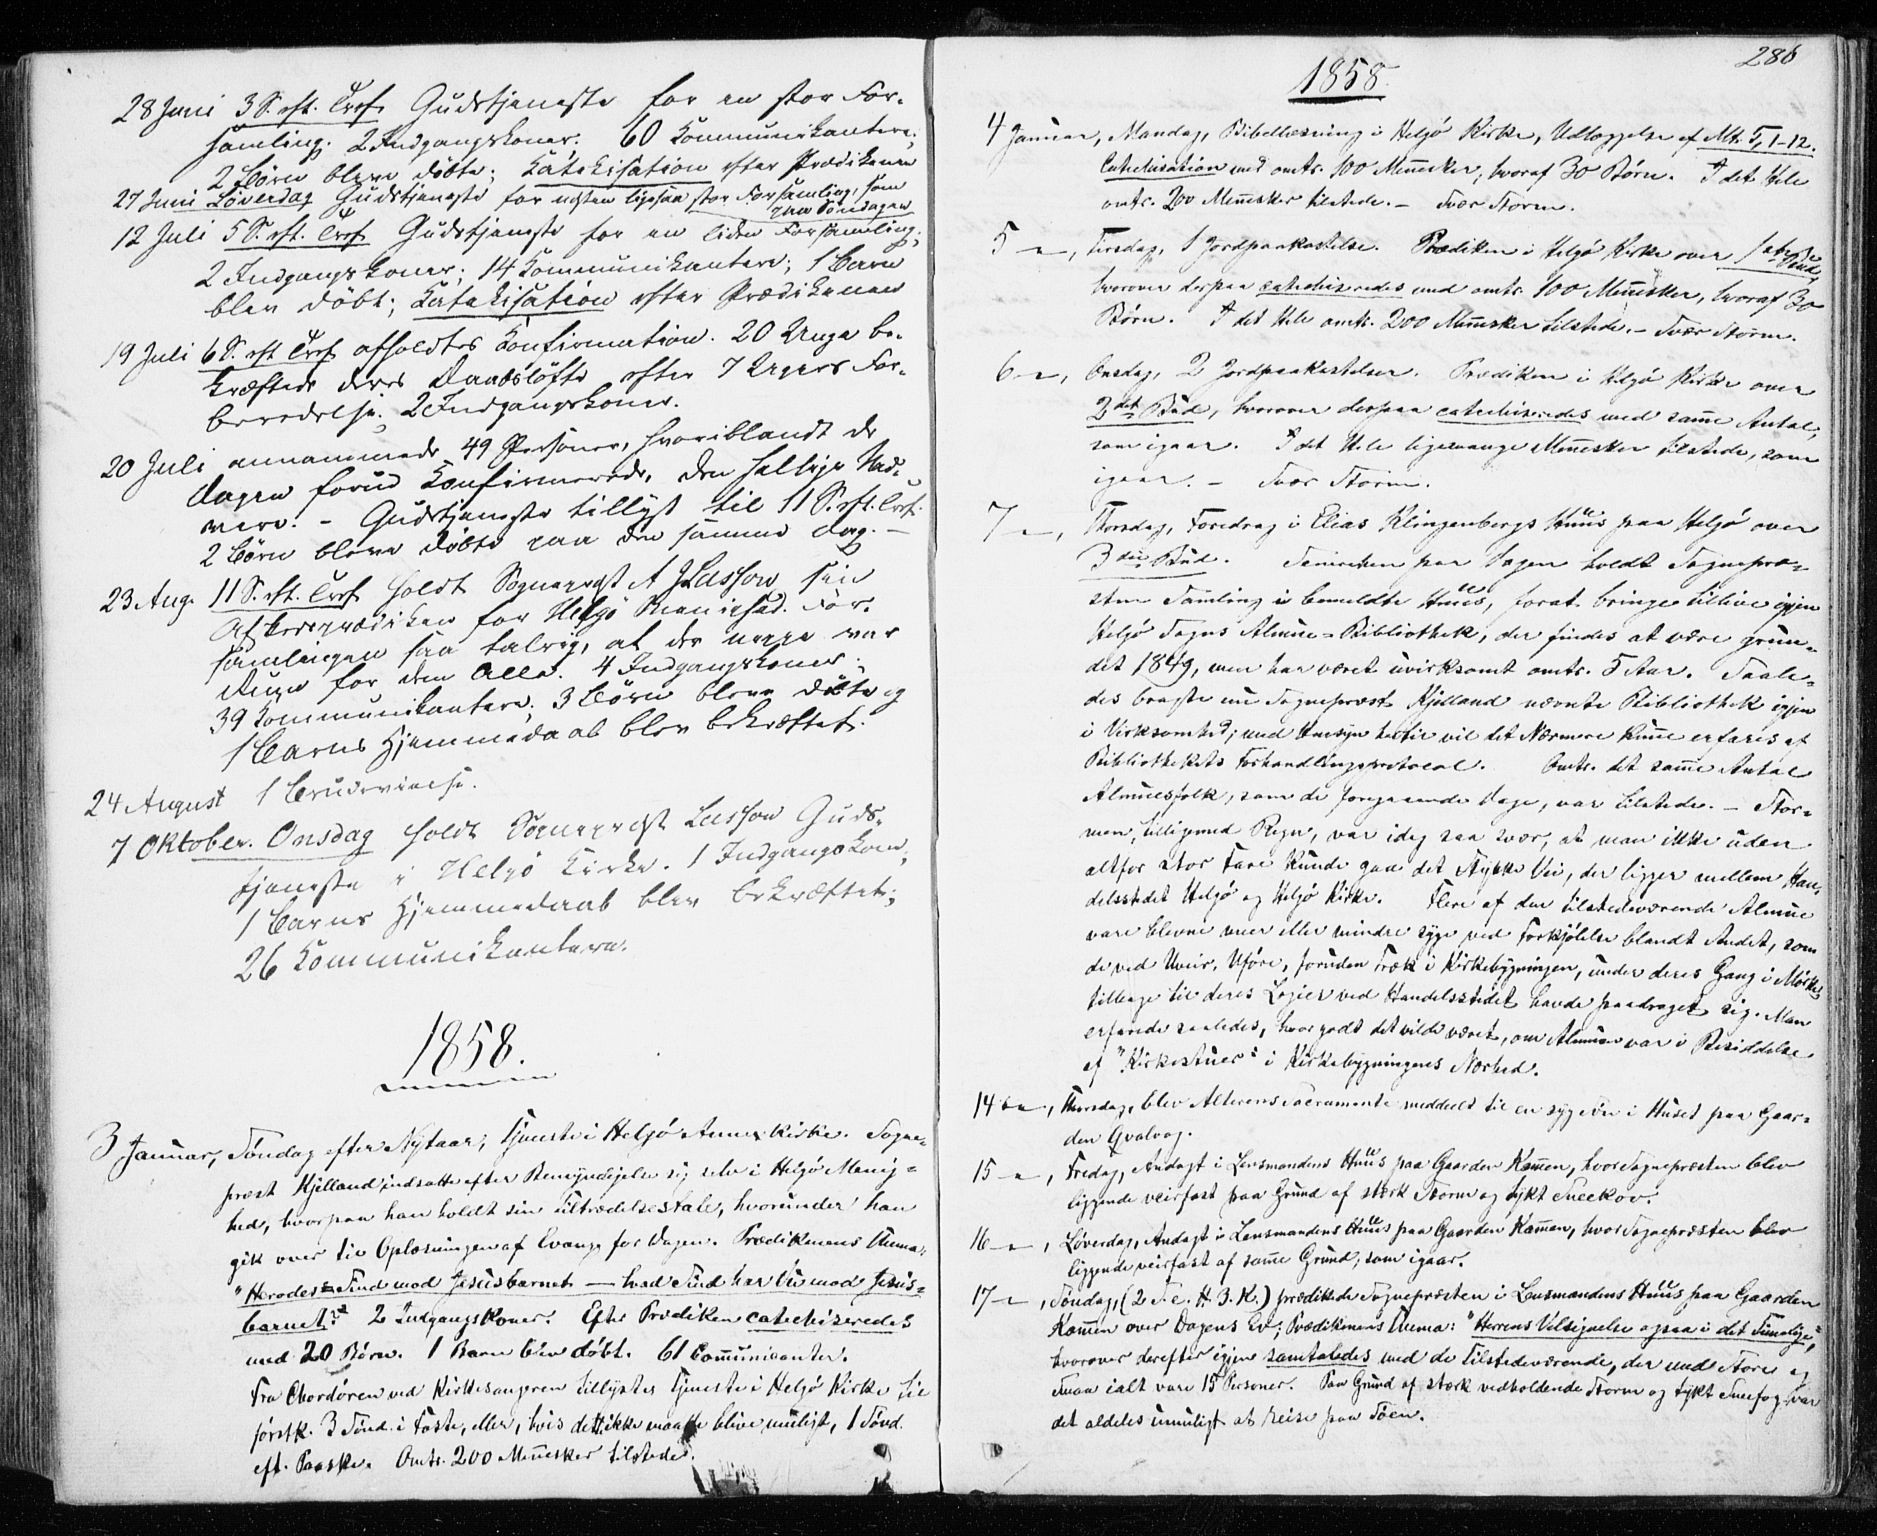 28 Juni 3 S. eft. Tref. Gudstjeneste for en stor For-
samling. 2 Indgangskoner. 60 Kommunikantere;
2 Börn bleve döbte; Katekisation efter Prædikenen
27 Juni Löverdag Gudstjeneste for næsten ligesaa stor Forsamling, som
paa Söndagen
12 Juli 5 S. eft. Tref. Gudstjeneste for en liden Forsamling;
2 Indgangskoner; 14 Kommunikantere; 1 Barn
blev döbt; Katekisation efter Prædikenen
19 Juli 6 S. eft Tref afholdtes Konfirmation. 20 Unge be-
kræftede deres Daabslöfte efter 7 Ugers For-
beredelse. 2 Indgangskoner.
20 Juli annammede 49 Personer, hvoriblandt de
Dagen forud Konfirmerede, den hellige Nad-
vere. - Gudstjeneste tillyst til 11 S. eft. Tref.
2 Börn bleve döbte paa den samme Dag. -
23 Aug. 11 S. eft. Tref. holdt Sogneprest A J Lassow sin
Afskedsprædiken for Helgö Menighed. For-
samlingen saa talrig, at der neppe var
Rum for dem Alle. 4 Indgangskoner;
39 Kommunikantere; 3 Börn bleve döbte og
1 Barns Hjemmedaab blev bekræftet.
24 August 1 Brudevielse.
7 Oktober. Onsdag holdt Sogneprest Lassow Guds-
tjeneste i Helgö Kirke. 1 Indgangskone;
1 Barns Hjemmedaab blev bekræftet;
26 Kommunikantere.
1858.
3 Januar, Söndag efter Nytaar, Tjeneste i Helgö Annexkirke. Sogne-
præst Kjelland indsatte efter Bemyndigelse sig selv i Helgö Menig-
hed, hvorpaa han holdt sin Tiltrædelsestale, hvorunder han
gik over til Oplæsningen af Evang. for Dagen. Prædikenens Thema:
"Herodes's Sind mod Jesusbarnet — hvad Sind har Du mod Jesus-
barnet?" 2 Indgangskoner. Efter Prædiken catechiseredes
med 20 Börn. 1 Barn blev döbt. 61 Communicanter.
Fra Chordören ved Kirkesangeren tillystes Tjeneste i Helgö Kirke til
förstk. 3 Sönd. i Faste, eller, hvis det ikke maatte blive muligt, 1 Sönd.
eft. Paaske. Omtr. 200 Mennesker tilstede.
286
1858.
4 Januar, Mandag, Bibellæsning i Helgö Kirke, Udlæggelse af Mt. 5, 1-12.
Catechisation med omtr. 100 Mennesker, hvoraf 30 Börn. I det Hele
omtr. 200 Mennesker tilstede. — Svær Storm.
5 -, Tirsdag, 1 Jordpaakastelse. Prædiken i Helgö Kirke over 1ste Bud,
hvorover derpaa catechiseredes med omtr. 100 Mennesker, hvoraf 30
Börn. I det Hele omtr. 200 Mennesker tilstede. - Svær Storm.
6 -, Onsdag, 2 Jordpaakastelser. Prædiken i Helgö Kirke over
2det Bud, hvorover derpaa catechiseredes med samme Antal,
som igaar. I det Hele ligesaamange Mennesker tilstede, som
igaar. - Svær Storm.
7 -, Thorsdag, Foredrag i Elias Klingenbergs Huus paa Helgö over
3die Bud. Senere paa Dagen holdt Sognepræ-
sten Samling i bemeldte Huus, forat bringe tillive igjen
Helgö Sogns Almue-Bibliothek, der findes at være grun-
det 1849, men har været uvirksomt omtr. 5 Aar. Saale-
des bragte nu Sognepræst Kjelland nævnte Bibliothek igjen
i Virksomhed; med Hensyn hertil vil det Nærmere kunne erfares af
Bibliothekets Forhandlingsprotocol. Omtr. det samme Antal
Almuesfolk, som de foregaaende Dage, var tilstede. — Stor-
men, tilligemed Regn, var idag saa svær, at man ikke uden
altfor stor Fare kunde gaae det Stykke Vei, der ligger mellem Han-
delsstedet Helgö og Helgö Kirke. Flere af den tilstedeværende Almue
vare blevne meer eller mindre syge ved Forkjölelse blandt Andet, som
de ved Uveir, Uföre, foruden Træk i Kirkebygningen, under deres Gang i Mörke
tilbage til deres Logier ved Handelsstedet havde paadraget sig. Man
erfarede saaledes, hvor godt det vilde været, om Almuen var i Besiddelse
af "Kirkestuer" i Kirkebygningens Nærhed.
14 -, Thorsdag, blev Alterens Sacramente meddeelt til en syg i Huset paa Gaar-
den Qvalvog.
15 -, Fredag, Andagt i Lensmandens Huus paa Gaarden Kamen, hvor Sognepræsten blev
liggende veirfast paa Grund af stærk Storm og tykt Sneekov.
16 -, Löverdag, Andagt i Lensmandens Huus paa Gaarden Kamen, hvor Sognepræsten blev
liggende veirfast af samme Grund, som igaar.
17 -, Söndag, (2 S. e. H. 3. K.) prædikede Sognepræsten i Lensmandens Huus paa Gaarden
Kamen over Dagens Ev; Prædikenens Thema: "Herrens Velsignelse ogsaa i det Timelige",
hvorover derefter igjen samtaledes med de tilstedeværende, der med Store og
Smaa ialt vare 15 Personer. Paa Grund af stærk vedholdende Storm og tykt Sneefog var
det aldeles umuligt at reise paa Söen.